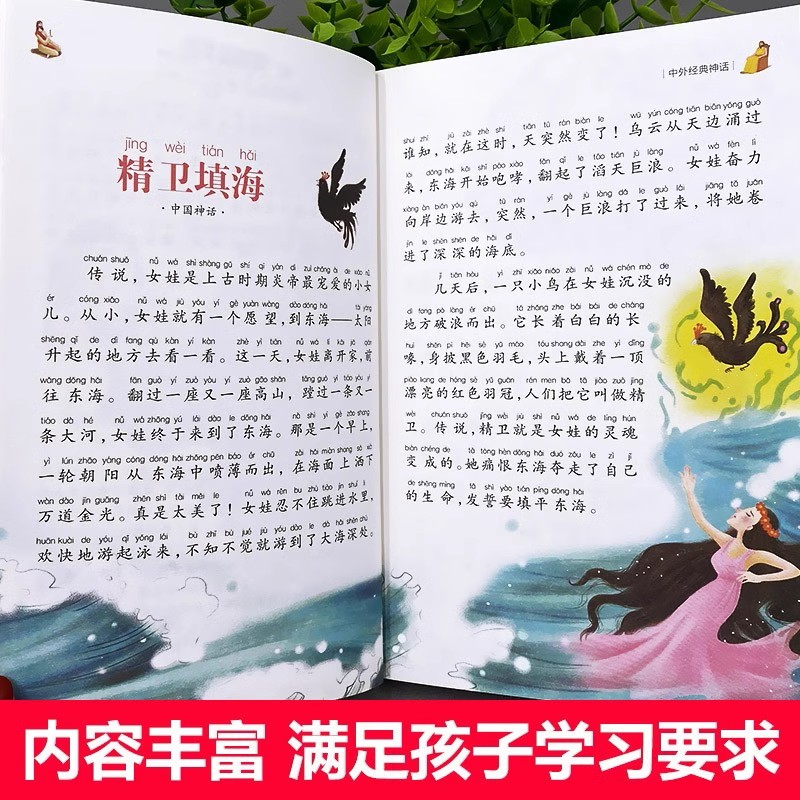 jīng wèi tián hǎi
精卫填海
·中国神话·
chuán shuō nǚ wá shì shàng gǔ shí qī yán dì zuì chǒng ài de xiǎo nǚ
传说，女娃是上古时期炎帝最宠爱的小女
ér cóng xiǎo nǚ wá jiù yǒu yí gè yuàn wàng dào dōng hǎi tài yáng
儿。从小，女娃就有一个愿望，到东海——太阳
shēng qǐ de dì fang qù kàn yí kàn zhè yì tiān nǚ wá lí kāi jiā qián
升起的地方去看一看。这一天，女娃离开家，前
wǎng dōng hǎi fān guò yí zuò yòu yí zuò gāo shān tāng guò yì tiáo yòu yì
往东海。翻过一座又一座高山，蹚过一条又一
tiáo dà hé nǚ wá zhōng yú lái dào le dōng hǎi nà shì yí gè zǎo shang
条大河，女娃终于来到了东海。那是一个早上，
yì lún zhāo yáng cóng dōng hǎi zhōng pēn bó ér chū zài hǎi miàn shang sǎ xià
一轮朝阳从东海中喷薄而出，在海面上洒下
wàn dào jīn guāng zhēn shì tài měi le nǚ wá rěn bu zhù tiào jìn shuǐ li
万道金光。真是太美了！女娃忍不住跳进水里，
huān kuài de yóu qǐ yǒng lái bù zhī bù jué jiù yóu dào le dà hǎi shēn chù
欢快地游起泳来，不知不觉就游到了大海深处。
中外经典神话
shuí zhī jiù zài zhè shí tiān tū rán biàn le wū yún cóng tiān biān yǒng guò
谁知，就在这时，天突然变了！乌云从天边涌过
lái dōng hǎi kāi shǐ páo xiào fān qǐ le tāo tiān jù làng nǚ wá fèn lì
来，东海开始咆哮，翻起了滔天巨浪。女娃奋力
xiàng àn biān yóu qù tū rán yí gè jù làng dǎ le guò lái jiāng tā juǎn
向岸边游去，突然，一个巨浪打了过来，将她卷
jìn le shēn shēn de hǎi dǐ
进了深深的海底。
jǐ tiān hòu yì zhī xiǎo niǎo zài nǚ wá chén mò de
几天后，一只小鸟在女娃沉没的
dì fang pò làng ér chū tā zhǎng zhe bái bái de cháng
地方破浪而出。它长着白白的长
huì shēn pī hēi sè yǔ máo tóu shang dài zhe yì dǐng
喙，身披黑色羽毛，头上戴着一顶
piào liang de hóng sè yǔ guān rén men bǎ tā jiào zuò jīng
漂亮的红色羽冠，人们把它叫做精
wèi chuán shuō jīng wèi jiù shì nǚ wá de líng hún
卫。传说，精卫就是女娃的灵魂
biàn chéng de tā tòng hèn dōng hǎi duó zǒu le zì jǐ
变成的。她痛恨东海夺走了自己
de shēng mìng fā shì yào tián píng dōng hǎi
的生命，发誓要填平东海。
内容丰富 满足孩子学习要求